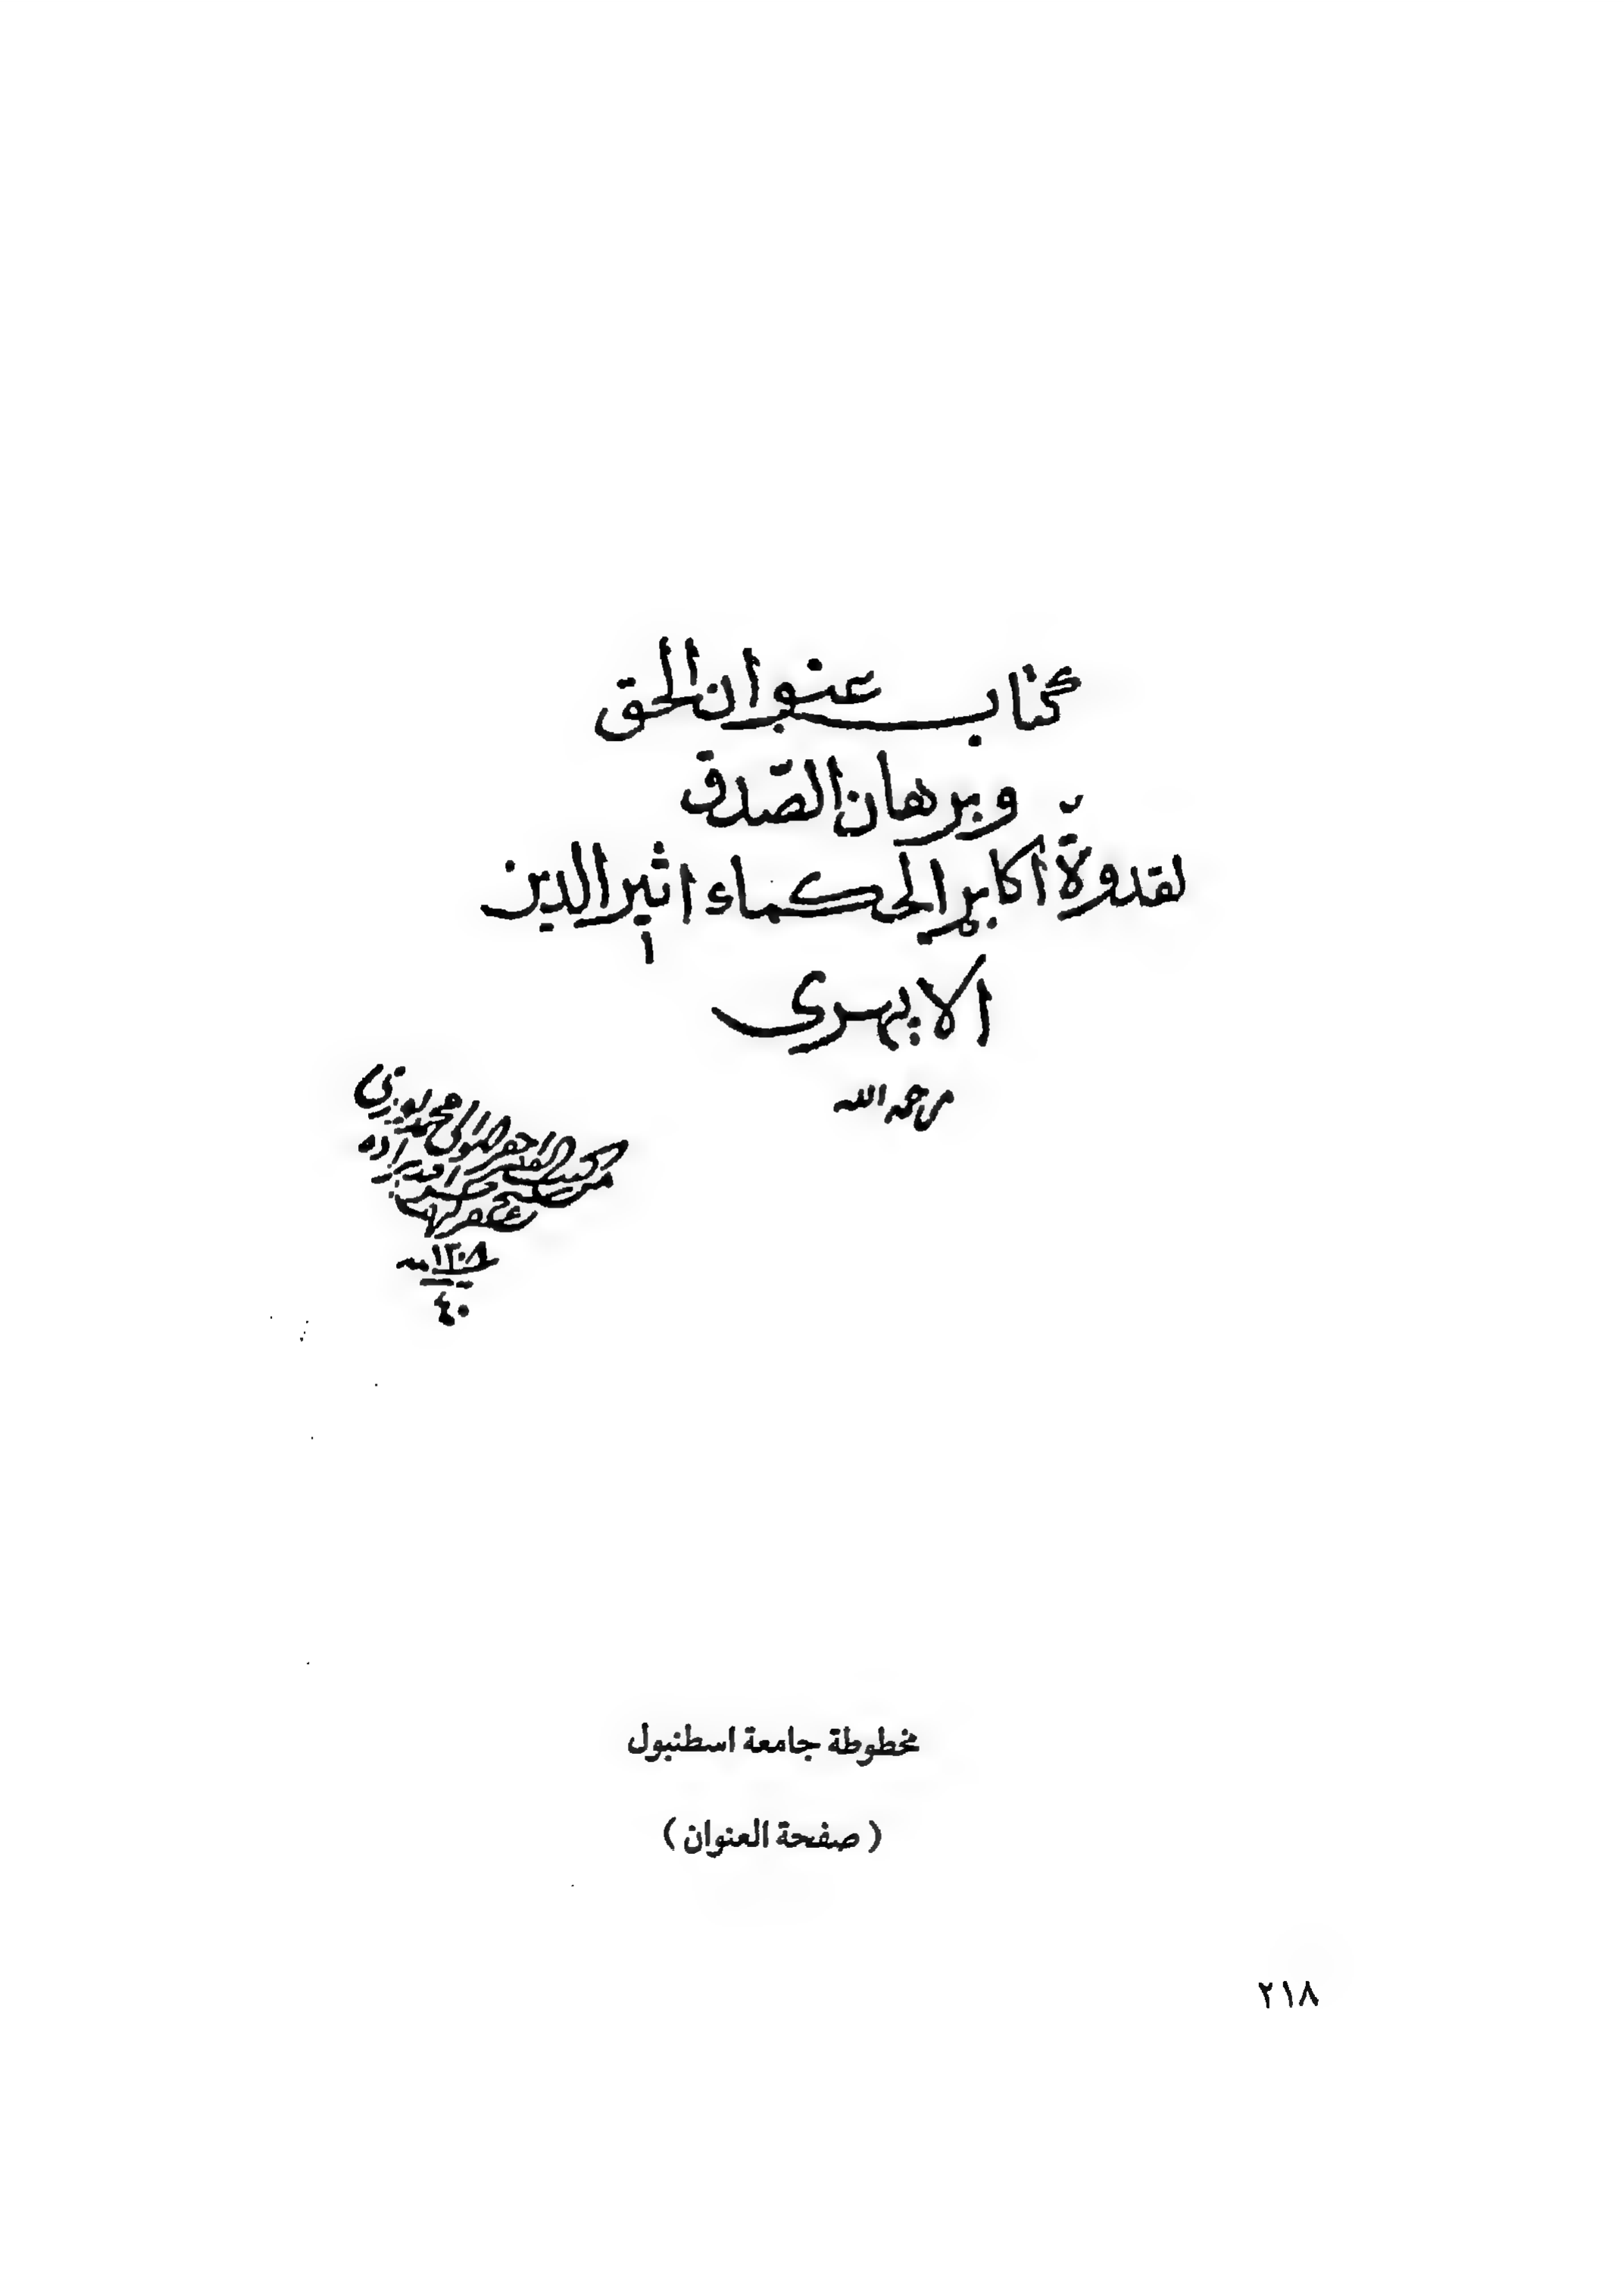 كتاب عنوان الحق
وبرهان الصّدق
لقدوة اكابر الحكماء اثير الدين
الابهرى
رحمه الله
محمد فوزى
١٣٠٨ سنه
٤٠
مخطوطة جامعة اسطنبول
( صفحة العنوان )
٢١٨